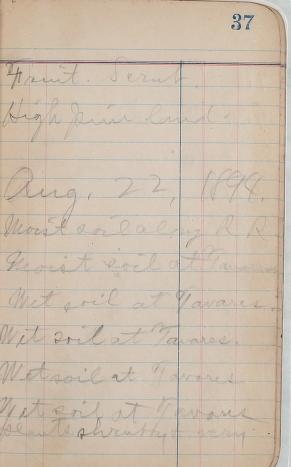 37
Fruit. Scrub.
High pine land.
Aug. 22, 1898.
Moist soil along R R
Moist soil at Tavares
Wet soil at Tavares.
Wet soil at Tavares.
Wet soil at Tavares
Wet soil at Tavares
shrubby